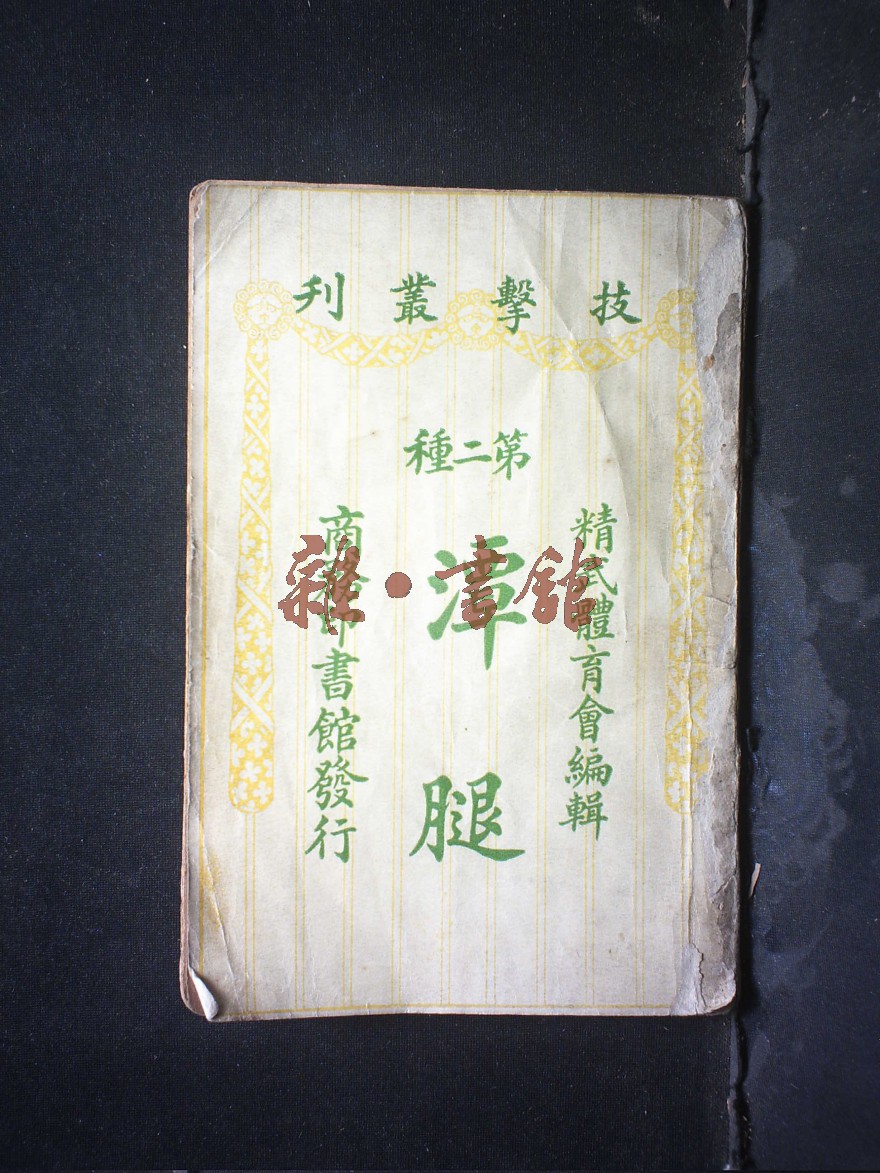 技擊叢刊
第二種
精武體育會編輯
潭腿
商務印書館發行
雜·書館